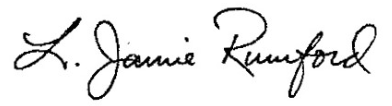 L. Jamie Rumford